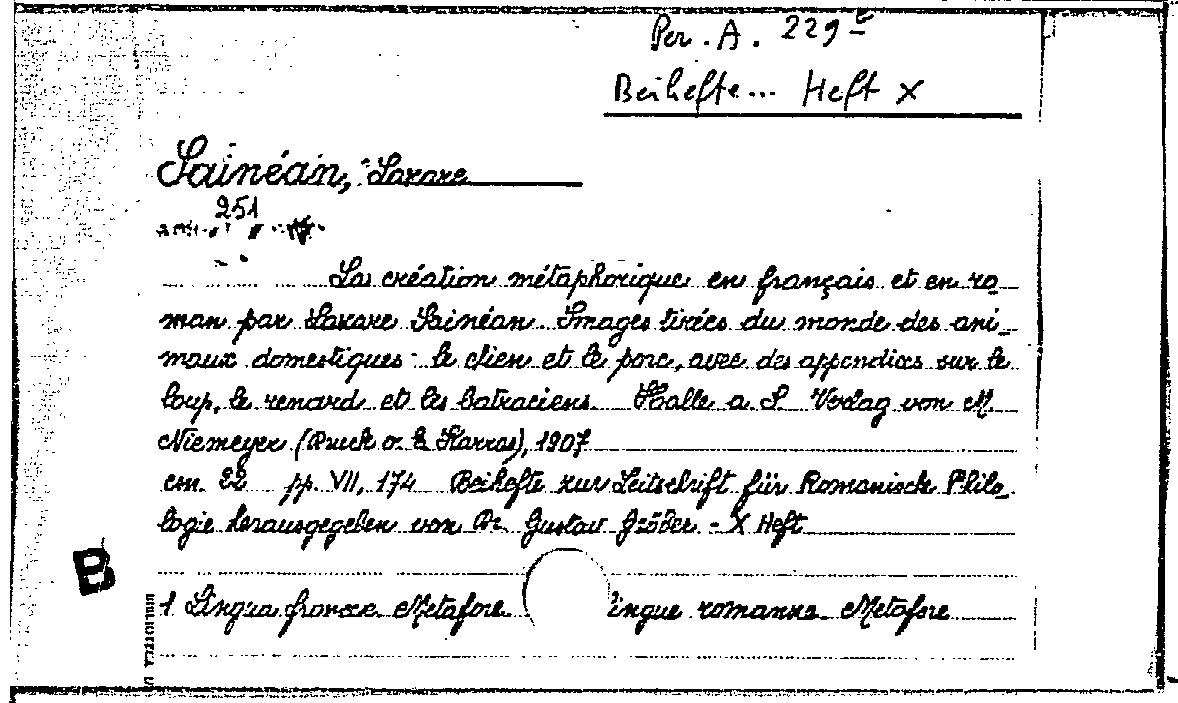 Per. A. 229
Beihefte... Heft X
Sainéan, Lazare
251
La création métaphorique en français et en ro
man par Lazare Sainéan. Images tirées du monde des ani_
maux domestiques: le chien et le porc, avec des appendices sur le
loup, le renard et les batraciens. Halle a. S. Verlag von M.
Niemeyer (Druck v. E. Karras), 1907
cm. 22 pp. VII, 174 Beihefte zur Zeitschrift für Romanische Philo_
logie herausgegeben von Dr. Gustav Gröber. - X Heft
B
1. Lingua francese. Metafore ingue romanze. Metafore
BIBLIOTECA